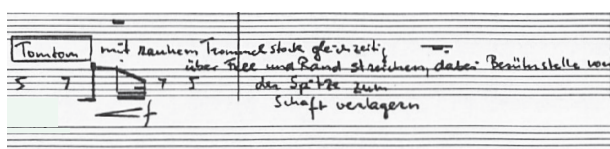 Tomtom mit rauhem Trommelstock gleichzeitig
über Fell und Rand streichen, dabei Berührstelle von
5 7 7 5 der Spitze zum
f Schaft verlagern